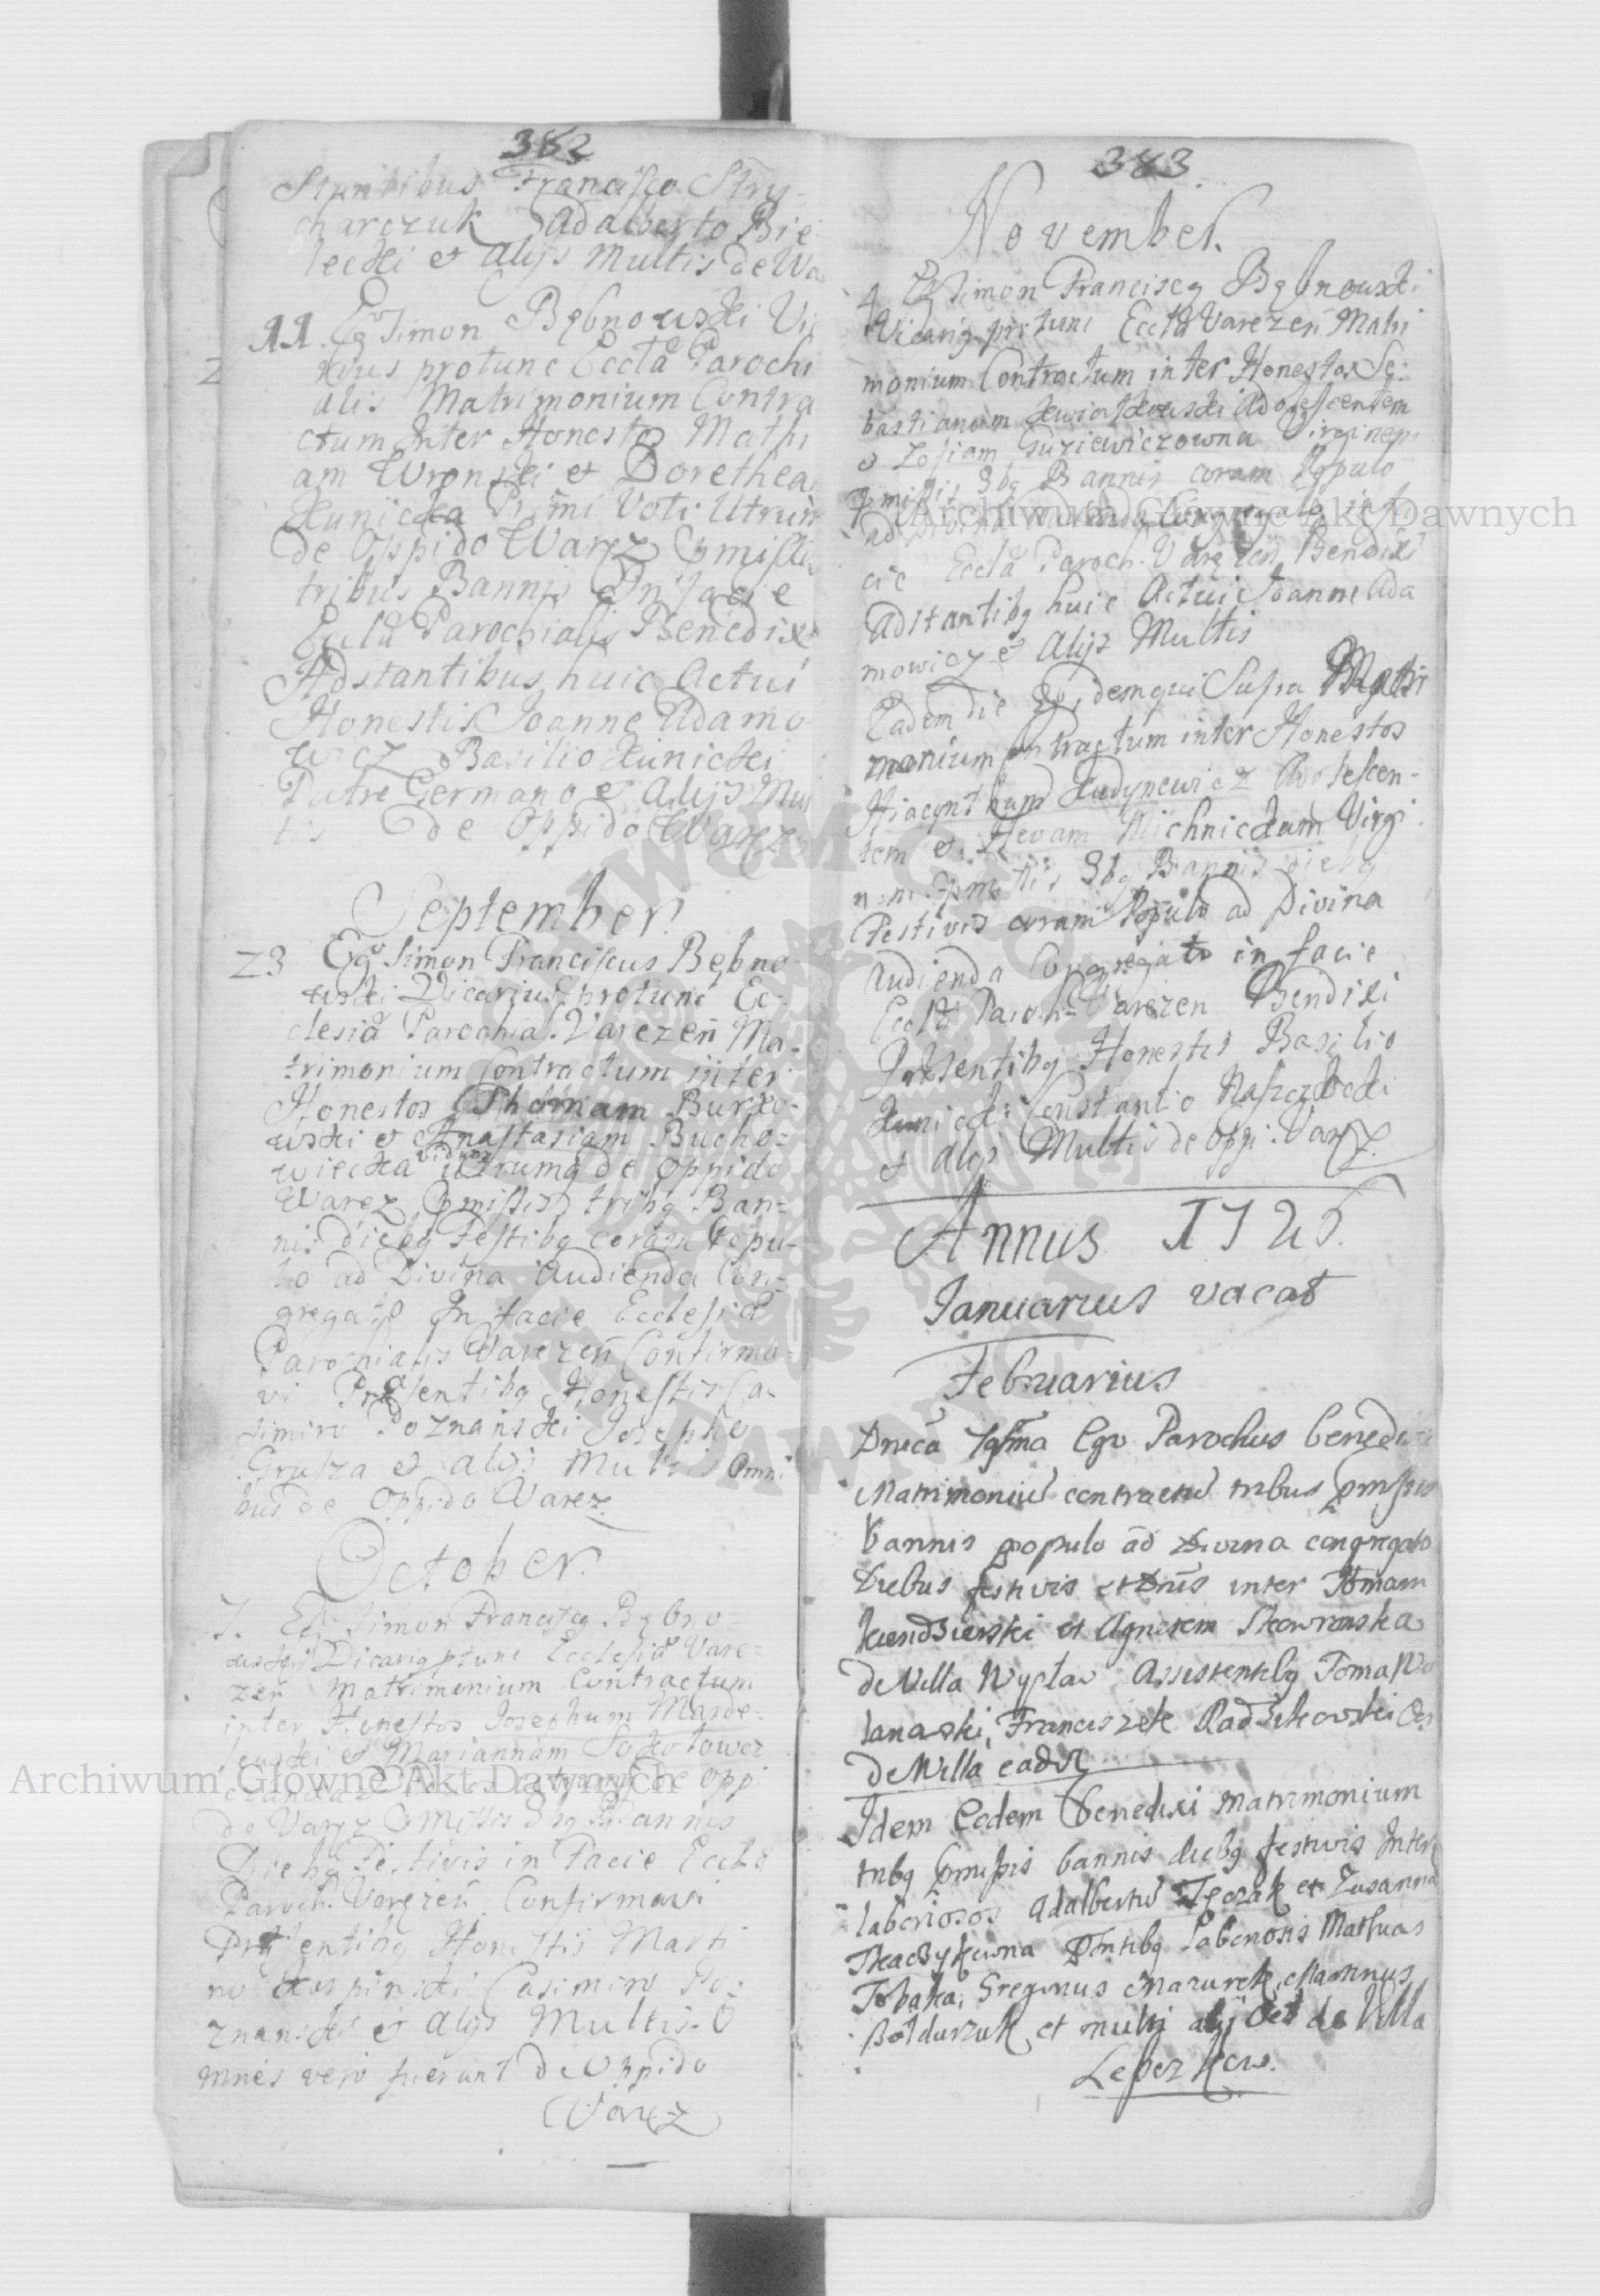 382
Stantibus Francisco Stry-
charczuk Adalberto Bie
lecki et Alijs Multis de Wa
11. Ego Simon Bębnowski Vi
rius protunc Eccla Parochi
alis Matrimonium Contra
ctum Inter Honestos Mathi
am Wronski et Dorothea
Kunicka Primi Voti Utrum
de Oppido Warez
tribus Bannis In facie
Eccla Parochialis Benedixi
Adstantibus huic Actui
Honestis Joanne Adamo-
wicz Basilio Kunicki
Patre Germano et Alijs Mul
tis de Oppido Warez
September
23 Ego Simon Franciscus Bębno
wski Vicarius protunc Ec-
clesia Parochial. Varezen Ma-
trimonium Contractum inter
Honestos Thomam Burko-
wski et Anastasiam Bucho-
wiecka viduos utrumq de Oppido
Warez tribq Ban-
nis diebq Festibq coram Popu-
lo ad Divina Audienda Con-
gregato In facie Ecclesia
Parochialis Varezen Confirma-
vi Præsentibq Honestis Ca
simiro Poznanski Josepho
Grusza et alijs Multis Omni
bus de Oppido Varez
October
7. Ego Simon Franciscq Bębno-
wskij Vicariq ptunc Ecclesia Vare-
zen Matrimonium Contractum
inter Honestos Josephum Marde-
lewski et Mariannam
de Oppi
do Varez Bannis
Diebq Festivis in Facie Eccla
Paroch. Varezen Confirmavi
Præsentibq Honestis Marti
no Casimiro Po-
znanski et Alijs Multis O
mnes vero fuerunt de Oppido
Varez
383
November
4 Ego Simon Franciscq Bębnowski
Vicariq protunc Eccla Varezen Matri
monium Contractum inter Honestos Se-
bastianum Kwiatkowski Adolescentem
et Zofiam Guziewiczowna Virginem
3bq Bannis coram Populo
ad Divina
cie Eccla Paroch. Varezen Bendixi
Adstantibq huic Actui Joanne Ada
mowicz et Alijs Multis
Eadem die Idemqui Supra Matri
monium Contractum inter Honestos
Hiacynthum Kudynewicz Adolescen-
tem et Hevam Michnickam Virgi
nem 3bq Bannis diebq
Festivis coram Populo ad Divina
Audienda Congregato in facie
Eccla Paroch. Varezen Bendixi
Præsentibq Honestis Basilio
Kunicki Constantio Naszczocki
et Alijs Multis de Oppi: Varez.
Annus 1726.
Januarius vacat
Februarius
Dnica Ego Parochus benedixi
Matrimoniu contractu tribus
bannis populo ad Divina congregato
Diebus festivis et Dnis inter Tomam
Kendzierski et Agnetem Skowronska
de Villa Wyżlow Assistentibq Toma Wo
lanaski, Franciszek Radzikowski Oes
de Villa eadem
Idem Eodem benedixi matrimonium
tribq bannis diebq festivis Inter
laboriosos Adalbertu et Zusanna
Tkaczykowna Laboriosis Mathias
Tobaka, Gregorius Mazurek, Martinus
Bołdurzuk et multi alij Oes de Villa
Leszczkow.
Archiwum Główne Akt Dawnych
Archiwum Główne Akt Dawnych
ARCHIWUM GŁÓWNE AKT DAWNYCH